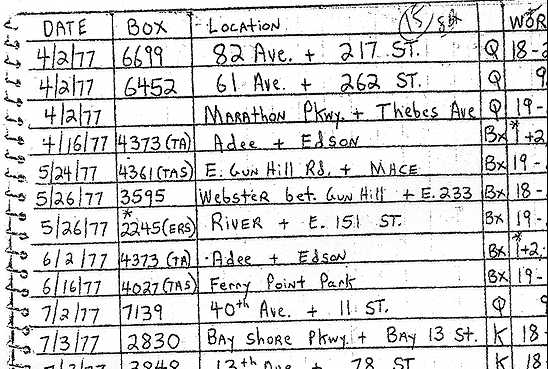 DATE BOX LOCATION WOR
4/2/77 6699 82 Ave. + 217 ST. Q 18-2
4/2/77 6452 61 Ave. + 262 ST. Q 9
4/2/77 Marathon Pkwy. + Thebes Ave Q 19-
4/16/77 4373 (TA) Adee + Edson Bx *1+2,
5/24/77 4361 (TAS) E. Gun Hill Rd. + Mace Bx 19-
5/26/77 3595 Webster bet. Gun Hill + E. 233 Bx 18-
5/26/77 *2245 (ERS) River + E. 151 ST. Bx 19-
6/2/77 4373 (TA) Adee + Edson Bx *1+2,
6/16/77 4027 (TAS) Ferry Point Park Bx 19-
7/2/77 7139 40th Ave. + 11 ST. Q 9
7/3/77 2830 Bay Shore Pkwy. + Bay 13 St. K 18-
13th Ave + 78 ST K 18